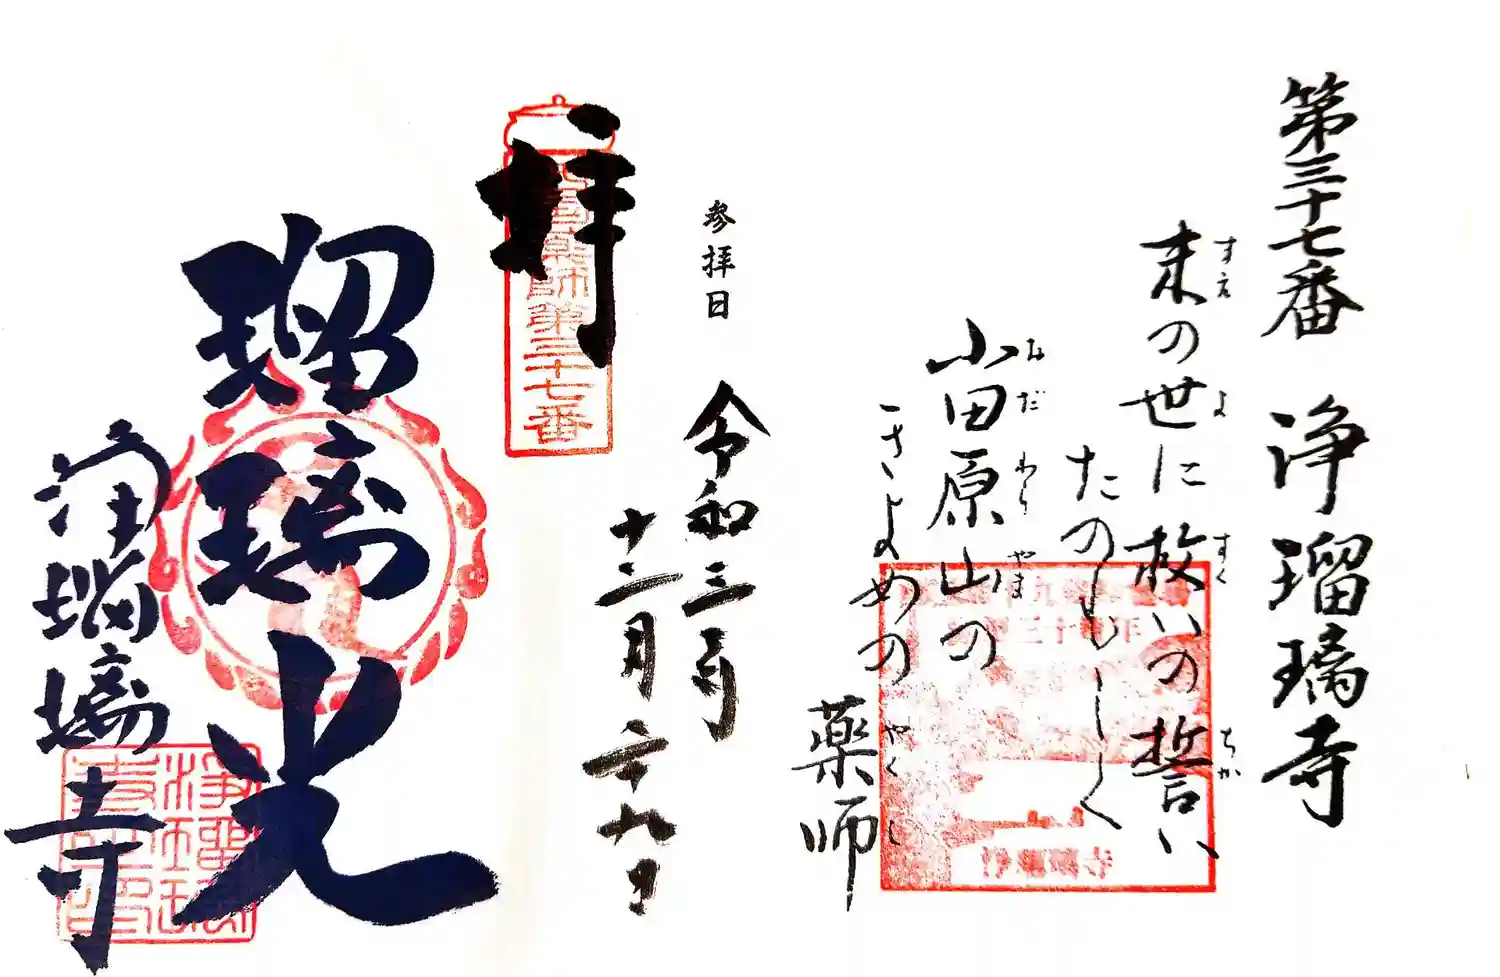 第三十七番 浄瑠璃寺
末の世に救いの誓い
すえ よ すく ちか
たのもしく
小田原山の
おだ わら やま
きよめの
薬師
やく し
参拝日
令和三年
十二月二十九日
拝
西国薬師第三十七番
瑠璃光
浄瑠璃寺
浄瑠璃寺